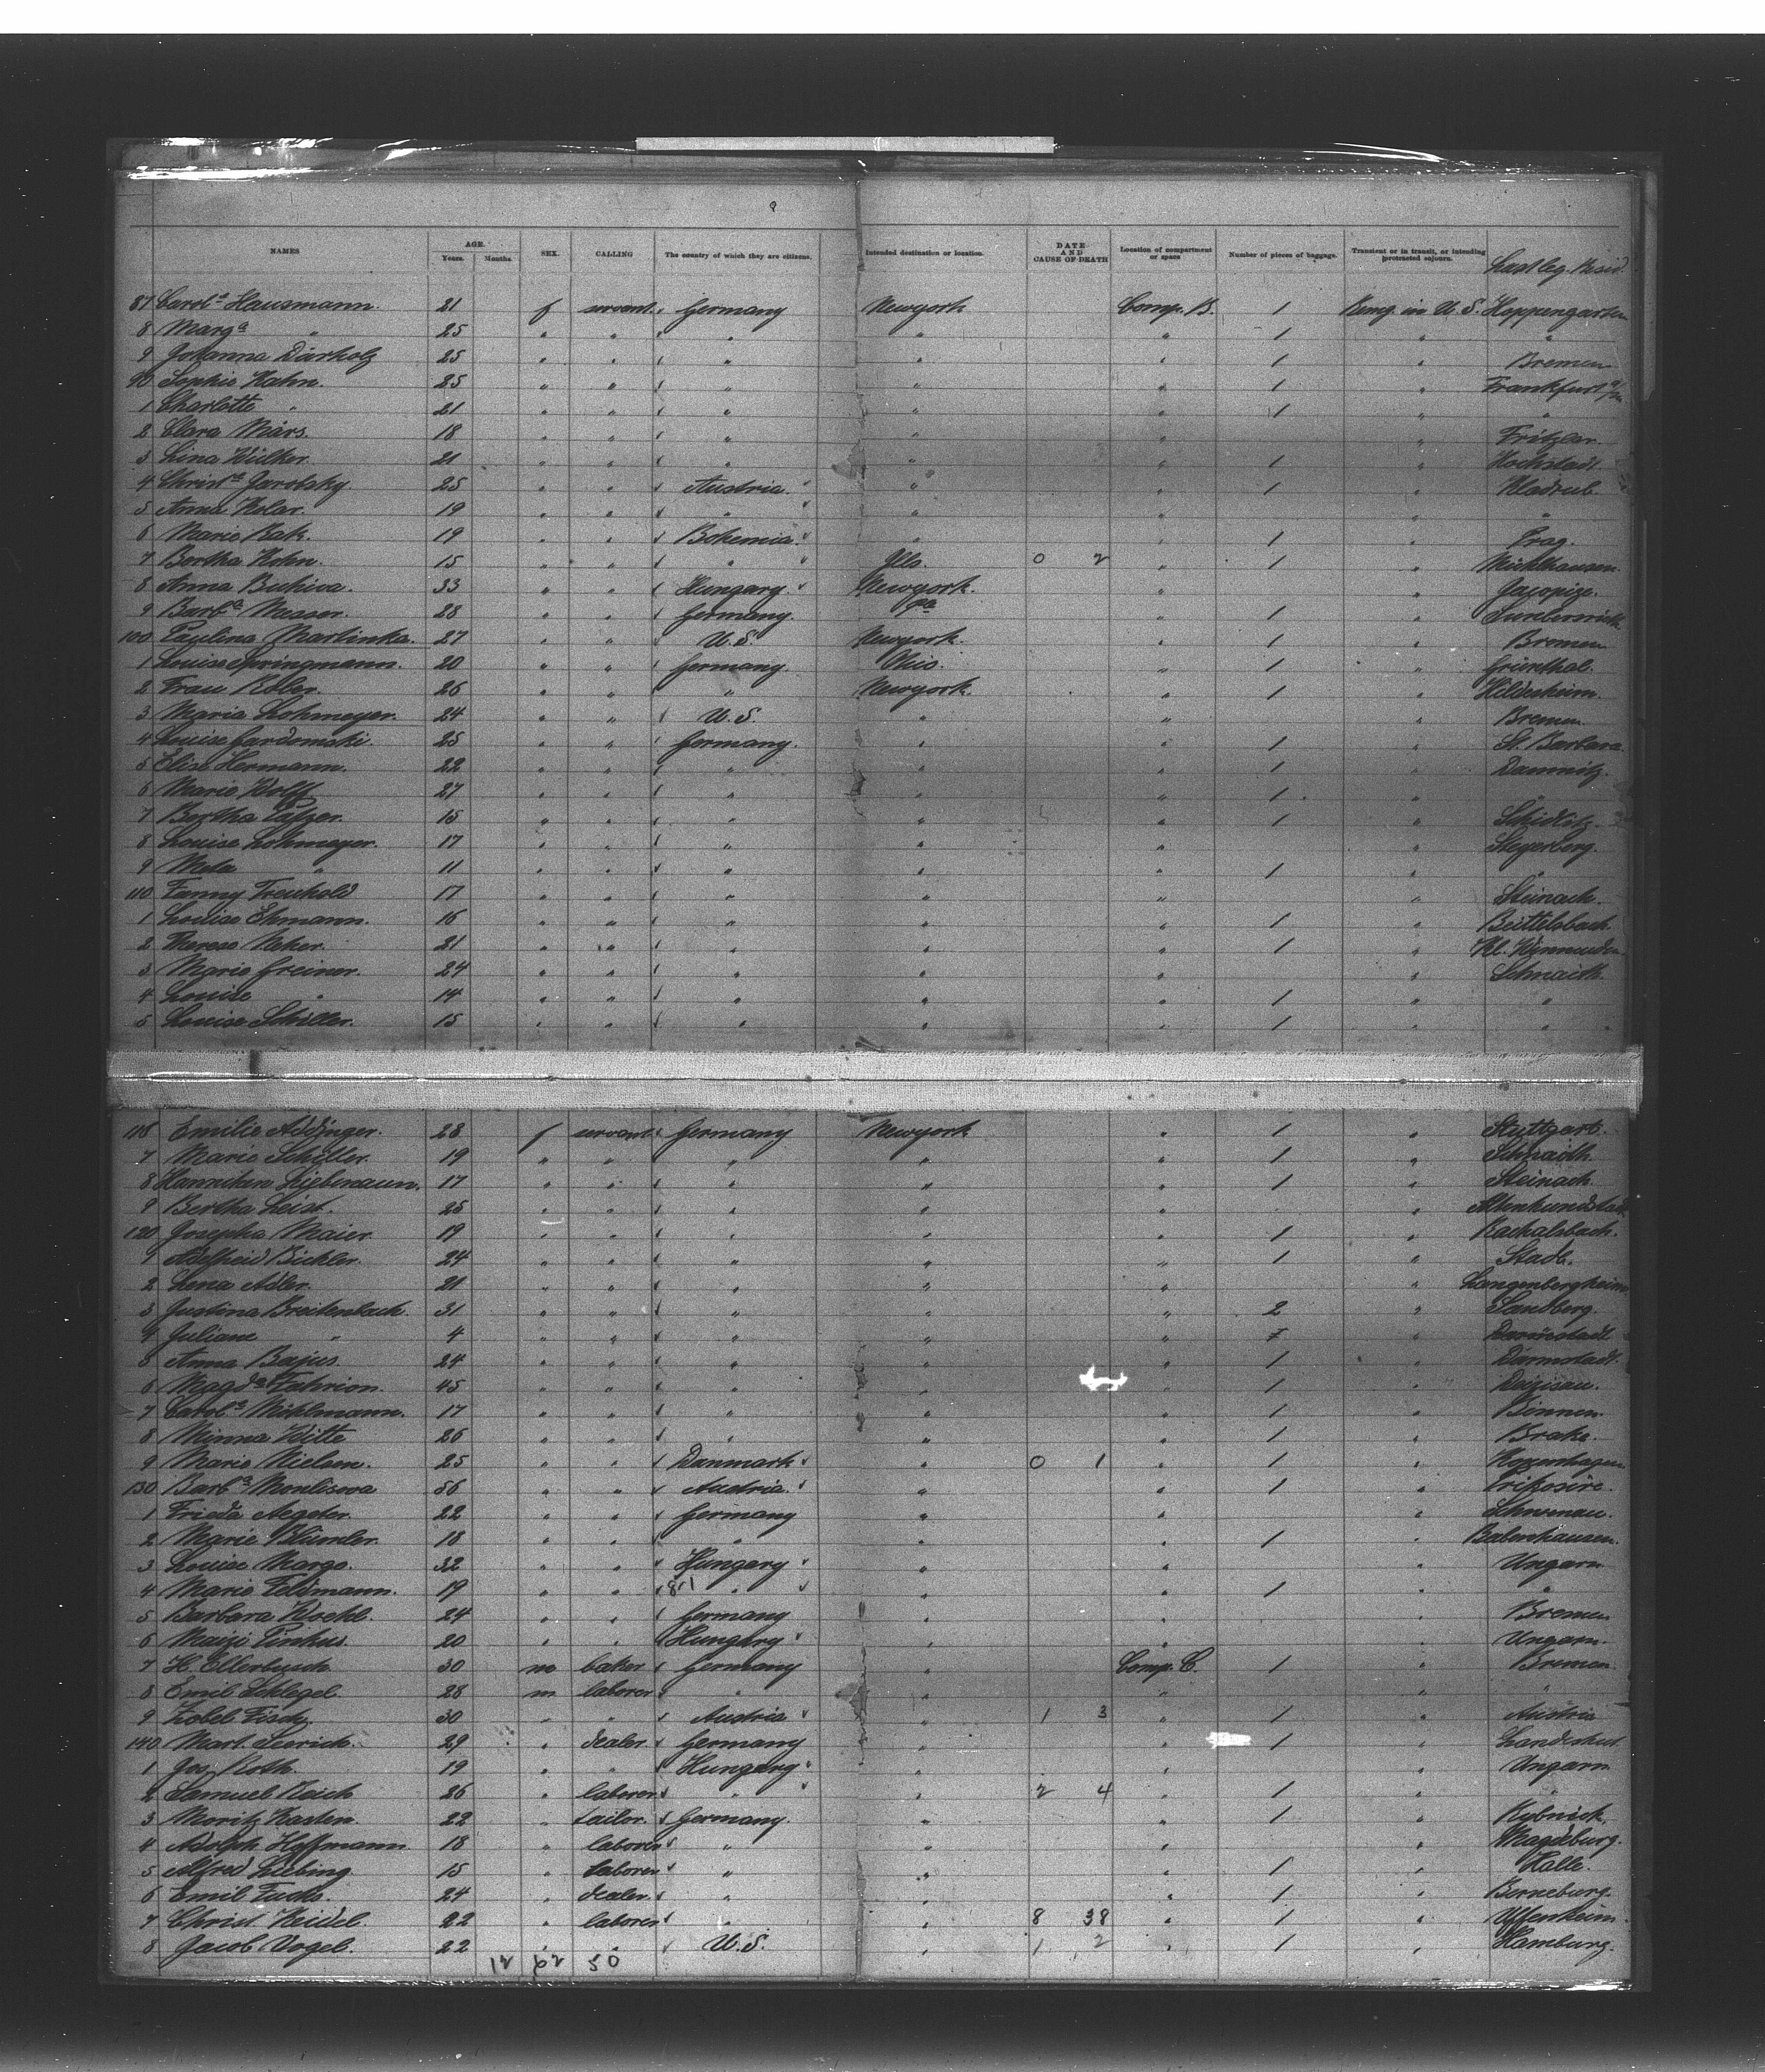 NAMES AGE. Years. Months. SEX. CALLING The country of which they are citizens. Intended destination or location. DATE AND CAUSE OF DEATH Location of compartment or space Number of pieces of baggage. Transient or in transit, or intending protracted sojourn. Last leg. Resid.
87 Carol a Hausmann. 21 f servant. Germany Newyork Comp. B. 1 Remg. in U. S. Hoppengarten
8 Marg a " 25 " " " " " 1 " "
9 Johanna Därholz 25 " " " " " 1 " Bremen
90 Sophie Hahn. 25 " " " " " 1 " Frankfurt a/m
1 Charlotte " 21 " " " " " 1 " "
2 Clara Märs. 18 " " " " " " Fritzlar.
3 Lina Wülker. 21 " " " " " 1 " Hochstadt.
4 Christ a Jarolsky 25 " " Austria. " " 1 " Kladrub.
5 Anna Kolar. 19 " " " " " " "
6 Marie Bak. 19 " " Bohemia. " " 1 " Prag.
7 Bertha Kohn. 15 " " " Ills. 0 2 " 1 "
8 Anna Buhiva. 33 " " Hungary Newyork. " "
9 Barb a Masser. 28 " " Germany. Pa " 1 "
100 Paulina Martinka. 27 " " U. S. Newyork. " 1 " Bremen
1 Louise Springmann. 20 " " Germany. Ohio. " 1 " Grienthal.
2 Frau Kober. 26 " " " Newyork. " 1 " Hildesheim.
3 Maria Lohmeyer. 24 " " U. S. " " " Bremen
4 Louise Gardomski. 25 " " Germany. " " 1 " St. Barbara.
5 Elise Hermann. 22 " " " " " 1 " Damnitz.
6 Marie Wolff 27 " " " " " 1 " "
7 Bertha 15 " " " " " 1 " Schidlitz.
8 Louise Lohmeyer. 17 " " " " " " Steyerberg.
9 Meta " 11 " " " " " 1 " "
110 Fanny Treuhold 17 " " " " " " Steinach.
1 Louise Ehmann. 16 " " " " " 1 " Beittelsbach
2 Therese Neher. 21 " " " " " 1 " Kl.
3 Marie Greiner. 24 " " " " " " Schnaith.
4 Louise " 14 " " " " " 1 " "
5 Louise Schiller. 15 " " " " " 1 " "
116 Emilie Aldinger. 28 f servant. Germany Newyork " 1 " Stuttgart.
7 Marie Schiller. 19 " " " " " 1 " Schnaith.
8 Hannchen Liebmann. 17 " " " " " 1 " Steinach.
9 Bertha Leist. 25 " " " " " " Altenkundstadt
120 Josepha Maier 19 " " " " " 1 "
1 Adelheid Bichler. 24 " " " " " 1 " Stade.
2 Lena Adler. 21 " " " " " " Langenbergheim.
3 Justina Breitenbach. 31 " " " " " 2 " Sandberg.
4 Juliane " 4 " " " " " "
5 Anna Bajus. 24 " " " " " 1 " Darmstadt.
6 Magd a Fahrion. 45 " " " " " 1 " Deizisau.
7 Carol a Möhlmann. 17 " " " " " 1 " Binnen.
8 Minna Witte 26 " " " " " 1 " Brake.
9 Marie Nielsen. 25 " " Danmark " 0 1 " 1 " Kopenhagen
130 Barb a Monlisova 56 " " Austria. " " 1 "
1 Frieda Aegeter. 22 " " Germany " " " Schwenau.
2 Marie Blümler. 18 " " " " " 1 " Babenhausen.
3 Louise Margo. 32 " " Hungary " " " Ungarn
4 Marie Feldmann. 19 " " 8-1 " " " 1 " "
5 Barbara Woehl. 24 " " Germany " " " Bremen
6 Maizi Pinkus. 20 " " Hungary " " " Ungarn.
7 H. Ellerbusch 30 m baker Germany " Comp. C. 1 " Bremen.
8 Emil Schlegel. 28 m laborer " " " " "
9 Zobel Fisch. 30 " " Austria " 1 3 " 1 " Austria
140 Mart. 29 " dealer. Germany " " 1 " Landeshut.
1 Jos. Roth. 19 " " Hungary " " " Ungarn
2 Samuel Reich 26 " laborer " " 2 4 " 1 " "
3 Moritz Kasten. 22 " tailor. Germany. " " 1 " Rybnick.
4 Adolph Hoffmann. 18 " laborer " " " " Magdeburg.
5 Alfred Liebing. 15 " laborer " " " 1 " Halle.
6 Emil Fuchs. 24 " dealer. " " " 1 " Berneburg.
7 Christ Keidel. 22 " laborer " " 8 38 " 1 " Uffenheim.
8 Jacob Vogel. 22 " " U. S. " 1 2 " 1 " Hamburg.
12 62 50